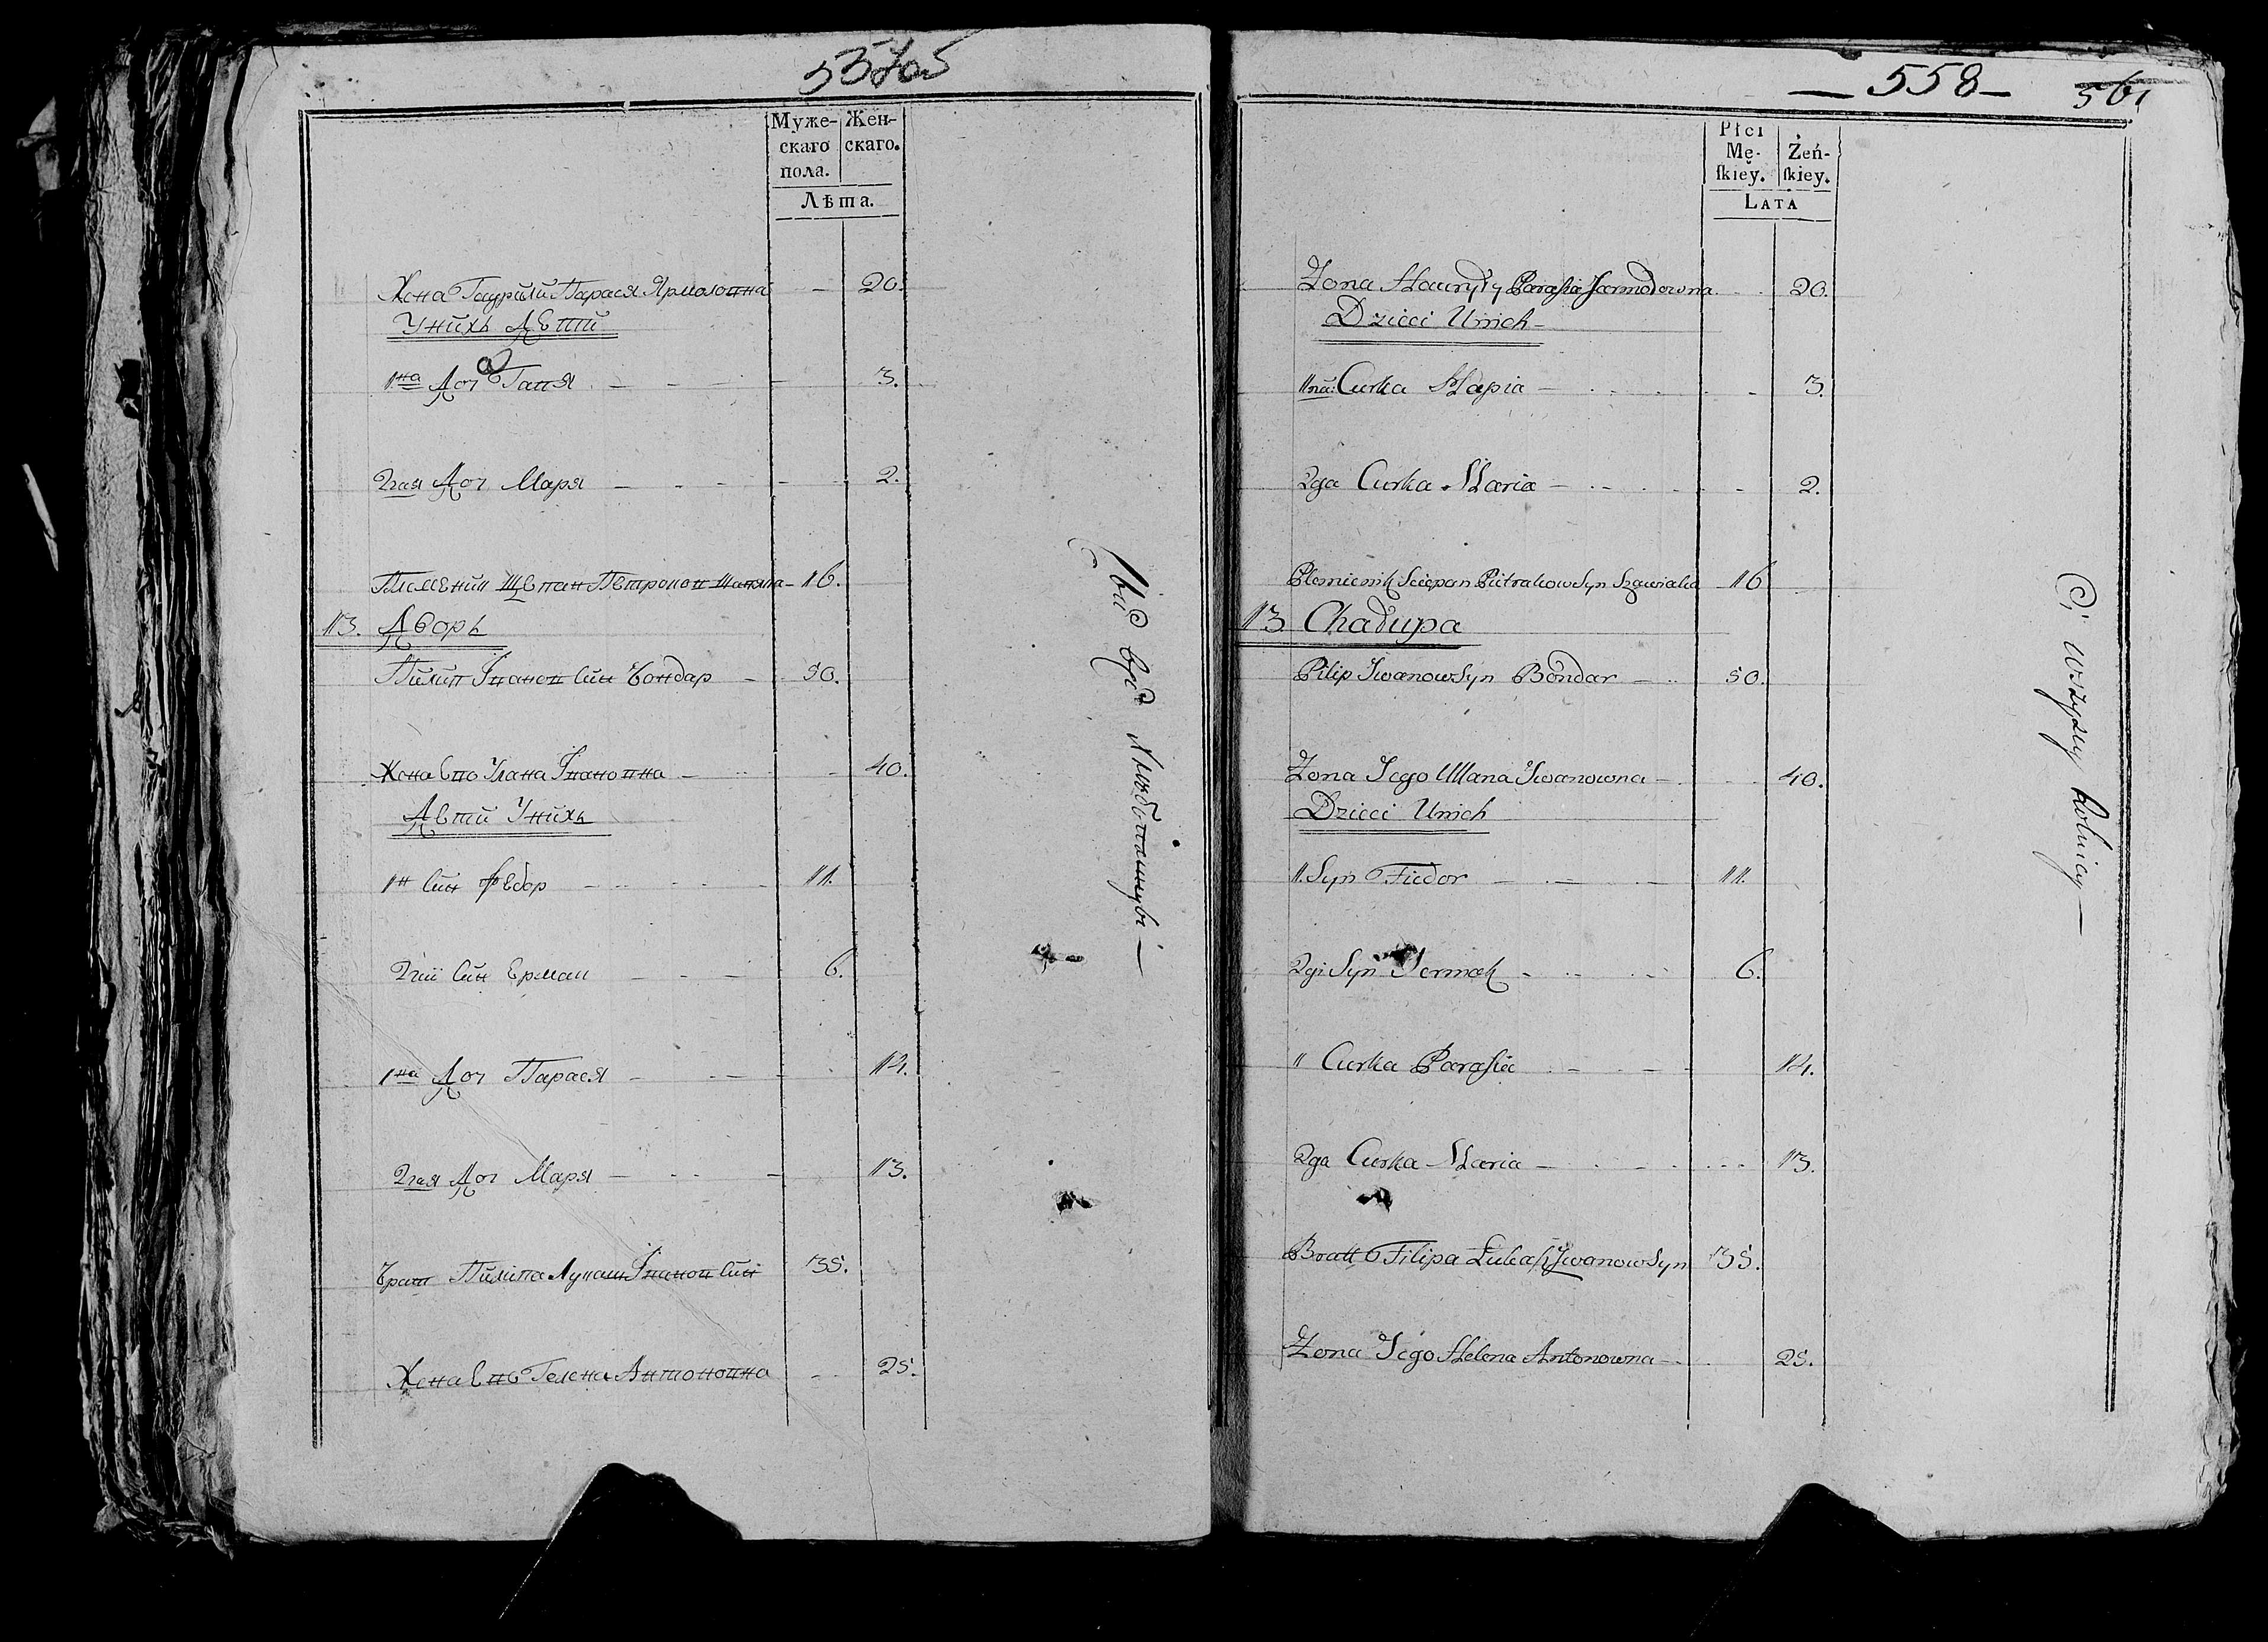 Муже-
скаго
пола.
Жен-
скаго.
Лѣта.
Жена Гаурили Парася Ярмоловна 20.
Унихъ Дѣти
1на Доч Гапя 3.
2гая Доч Маря 2.
Племѣник Щепан Петроков 16.
13. Дворъ
Пилип Іванов Син Бондар 50.
Жена Ево Улана Івановна 40.
Дѣти Унихъ
1н Син Федор 11.
2гий Син Ермак 6.
1на Доч Парася 14.
2гая Доч Маря 13.
Брат Пилипа Лукаш Іванов Син 35.
Жена Ево Гелена Антоновна 25.
558
561
Płci
Mę-
ſkiey.
Żeń-
ſkiey.
LATA
Żona Hawryły Parasia Jarmołowna 20.
Dzieci Unich
1na: Curka Hapia 3.
2ga Curka Maria 2.
Plemienik Sciepan Pietrakow Syn 16
13 Chałupa
Pilip Iwanow Syn Bondar 50.
Żona Jego Ullana Iwanowna 40.
Dzieci Unich
1. Syn Fiedor 11.
2gi Syn Jermak 6.
1 Curka Parasia 14.
2ga Curka Maria 13.
Bratt Filipa Łukasz Iwanow Syn 35.
Żona Jego Helena Antonowna 25.
Ci wszyscy Rolnicy